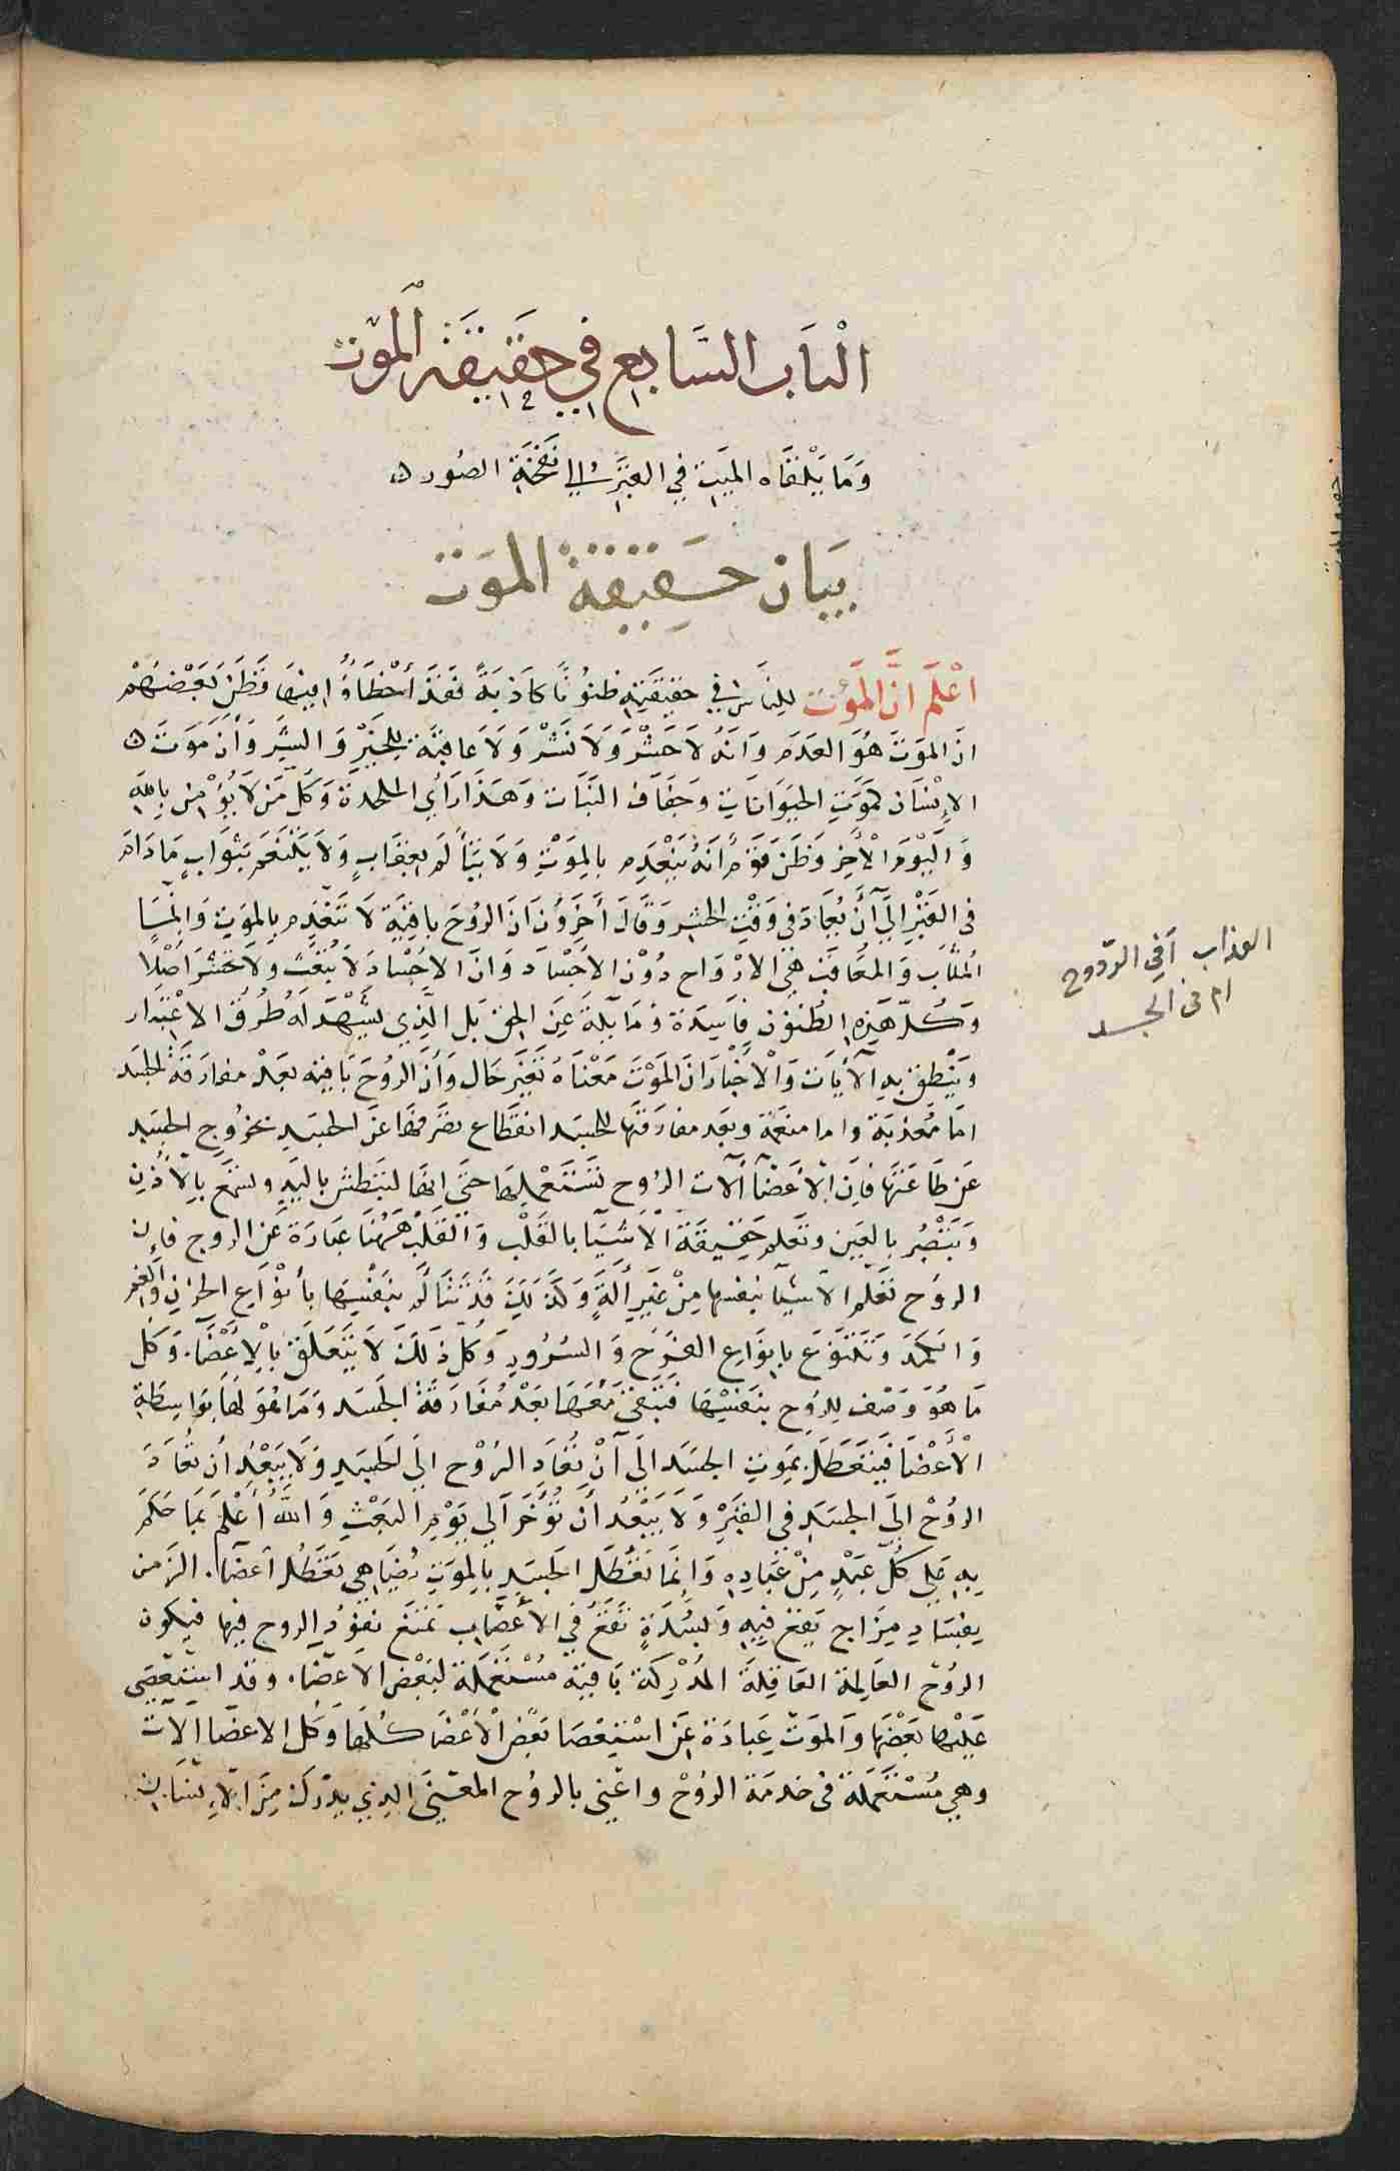 الْبَاب السَّابع في حَقِيقَة الْمَوْت
وَمَا يَلْقَاه الميّت في القبر الي نفخة الصُور ه
بَيَان حَقِيقَة الموَت
اعْلَم انَّ الْمَوْت للِنَاس في حَقِيقَتِه ظنوُنًا كاَذبَةً فَقَدْ أخْطَاؤُا فِيهَا فَظَنَ بَعْضهُمْ
انَ الموَتَ هُوَ العَدَم وَانَهُ لاَ حَشْرَ وَلاَ نَشْر وَلاَ عَاقِبَة لِلخَيْرْ وَالشَّر وَأنَ مَوَتَ ه
الإنْسَان كمَوَتِ الحيَوَانَات وجَفَاف النَبَات وَهَذَا رَأي الملحدة وَكلّ مَنَ لاَ يُؤْمِن بِالله
وَالْيَوْم الْأخِر وَظَنَ قَوْم أنَهُ يَنْعَدِم بالموَتِ وَلاَ يَتَألَم بعِقَابٍ وَلاَ يَتَنَعَم بثوَابٍ مَا دَامَ
في القَبْرِ الَي أَنَّ يُعَادَ في وَقْتِ الحشر وَقَالَ أخَروُنَ انَ الروُحَ باقِيَة لاَ تَنْعَدِم بالموَت وَانمَا
المُثَابَ وَالمُعَاقَب هِيَ الارْوَاح دُوْنَ الاَجْسَاد وَانَ الاَجْسَادَ لاَ تُبْعَث ولاَ تحشَر أصْلاً
وَكُلّ هَذِهِ الظنوُن فاَسِدَة وَمَايلَة عَن الحق بَل الَّذِي يَشْهَد لَه طُرُق الاعْتِبَار
ويَنْطِق بِهِ الآيَات وَالْاَخْبَار انَ الموْتَ مَعْنَاهُ تَغَيُر حَال وَأنَ الروُحَ بَاقِيَه بَعَدْ مفَارَقَة الجسَد
امَا مُعَذبَة واما منعَمَة وبَعَد مفَارَقتَها للجَسَد انقطَاع تصَرفهَا عَن الجسَد بخرُوج الجسَد
عَن طَاعَتهَا فاِن الأعَضَآ آلاَت الروُح تَسْتَعْمِلهَا حَتَى انهَا لتبَطش باليَدِ وتسْمَع بِالأُذُن
وَتَبْصُر بالعَيَن وتَعلَم حَقِيقَة الْاَشْيَآ بالقَلْب وَالْقَلْب هَهُنَا عبَارَة عَن الروح فاٍن
الروُح تعَلم الاَشيَآ بنفسهَا مِنْ غَيَر ألَة وَكَذَلِكَ قَدْ تَتَألَم بِنَفْسِهَا بأنوَاع الحزن وَالغم
وَالكمَد وَتَتَنَوَع بانوَاع الفَرَح وَالسُرُور وَكُل ذَلكَ لاَ يَتَعَلَق بالْأعْضَآ. وَكل
مَا هُوَ وَصْف لِلروُح بنَفسِهَا فَيَبْقَى مَعَهَا بَعْد مُفَارَقَة الجَسَد وَمَا هُوَ لهَا بوَاسِطَة
الْأعْضَآ فَيَتَعَطَل بمَوتِ الجسَد الَي أَنْ تُعَاد الرُوْح الَي الجسَد وَلاَ يَبْعُد أن تُعَادَ
الروُحْ اليَ الجسَد في القَبْرِ وَلاَ يَبْعُد أن تُؤَخَرَ الَي يَوْم البَعْث وَاللهُ أعْلَم بمَا حَكَمَ
بِهِ عَلي كُلّ عَبْدٍ مِنْ عِبَادِهِ وَانمَا تَعَطُل الجسَد بالموَت يُضَاهِي تعَطُل أعضَآ. الزمن
بفسَاد مِزَاج يَقعْ فِيهِ وَلشِدَة تَقَعُ في الاَعْصَاب تمْنَعُ نفوُذ الروح فيها فيكون
الروُح العَالِمة العَاقِلَة المُدْرِكَة بَاقِيَة مُسْتَعْمَلَة لِبَعْض الاَعضَآ. وقد استعْصَى
عَلَيْها بَعْضهَا وَالموَت عِبَارَة عَن اسْتِعْصَا بَعْض الْأعْضَا كُلهَا وَكل الاعضَا الاَت
وهيَ مُسْتَعْمَلَة في خدمَة الروُحْ واعْنِي بالروُح المَعْنَى الذِي يدْرك مِن الإنسَان
العذاب أفي الرّوح
ام في الجسد